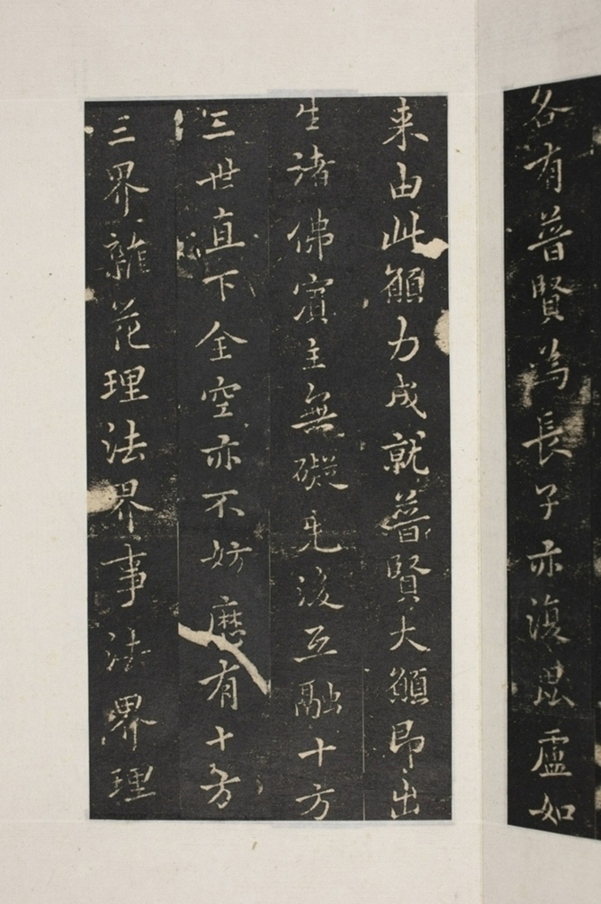 各有普賢為長子亦復毘盧如
来由此願力成就普賢大願即出
生諸佛賓主無礙先後互融十方
三世直下全空亦不妨歷有十方
三界雜花理法界事法界理